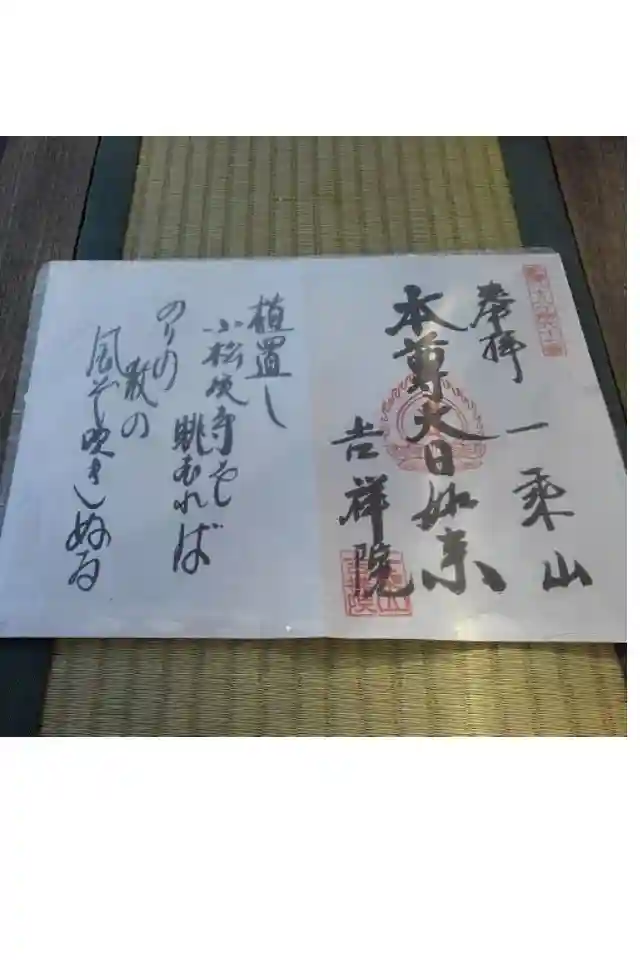 奉拝
一乗山
本尊大日如来
吉祥院
植置し
小松峴寺を
眺むれば
のりの
教の
風ぞ吹きしぬる